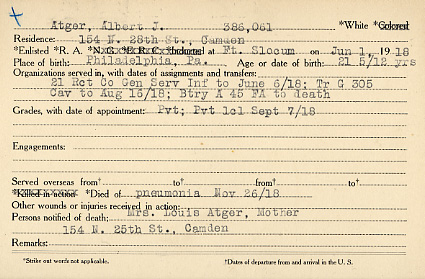 Atger, Albert J. 386,061 *White *Colored
Residence: 154 N. 28th St., Camden
*Enlisted *R. A. *N. G. *E. R. C. *Inducted at Ft. Slocum on Jun 1, 1918
Place of birth: Philadelphia, Pa. Age or date of birth: 21 5/12 yrs
Organizations served in, with dates of assignments and transfers:
21 Rct Co Gen Serv Inf to June 6/18; Tr G 305
Cav to Aug 16/18; Btry A 45 FA to death
Grades, with date of appointment: Pvt; Pvt 1cl Sept 7/18
Engagements:
Served overseas from† to† from† to†
*Killed in action *Died of pneumonia Nov 26/18
Other wounds or injuries received in action:
Persons notified of death: Mrs. Louis Atger, Mother
154 N. 25th St., Camden
Remarks:
*Strike out words not applicable. †Dates of departure from and arrival in the U. S.